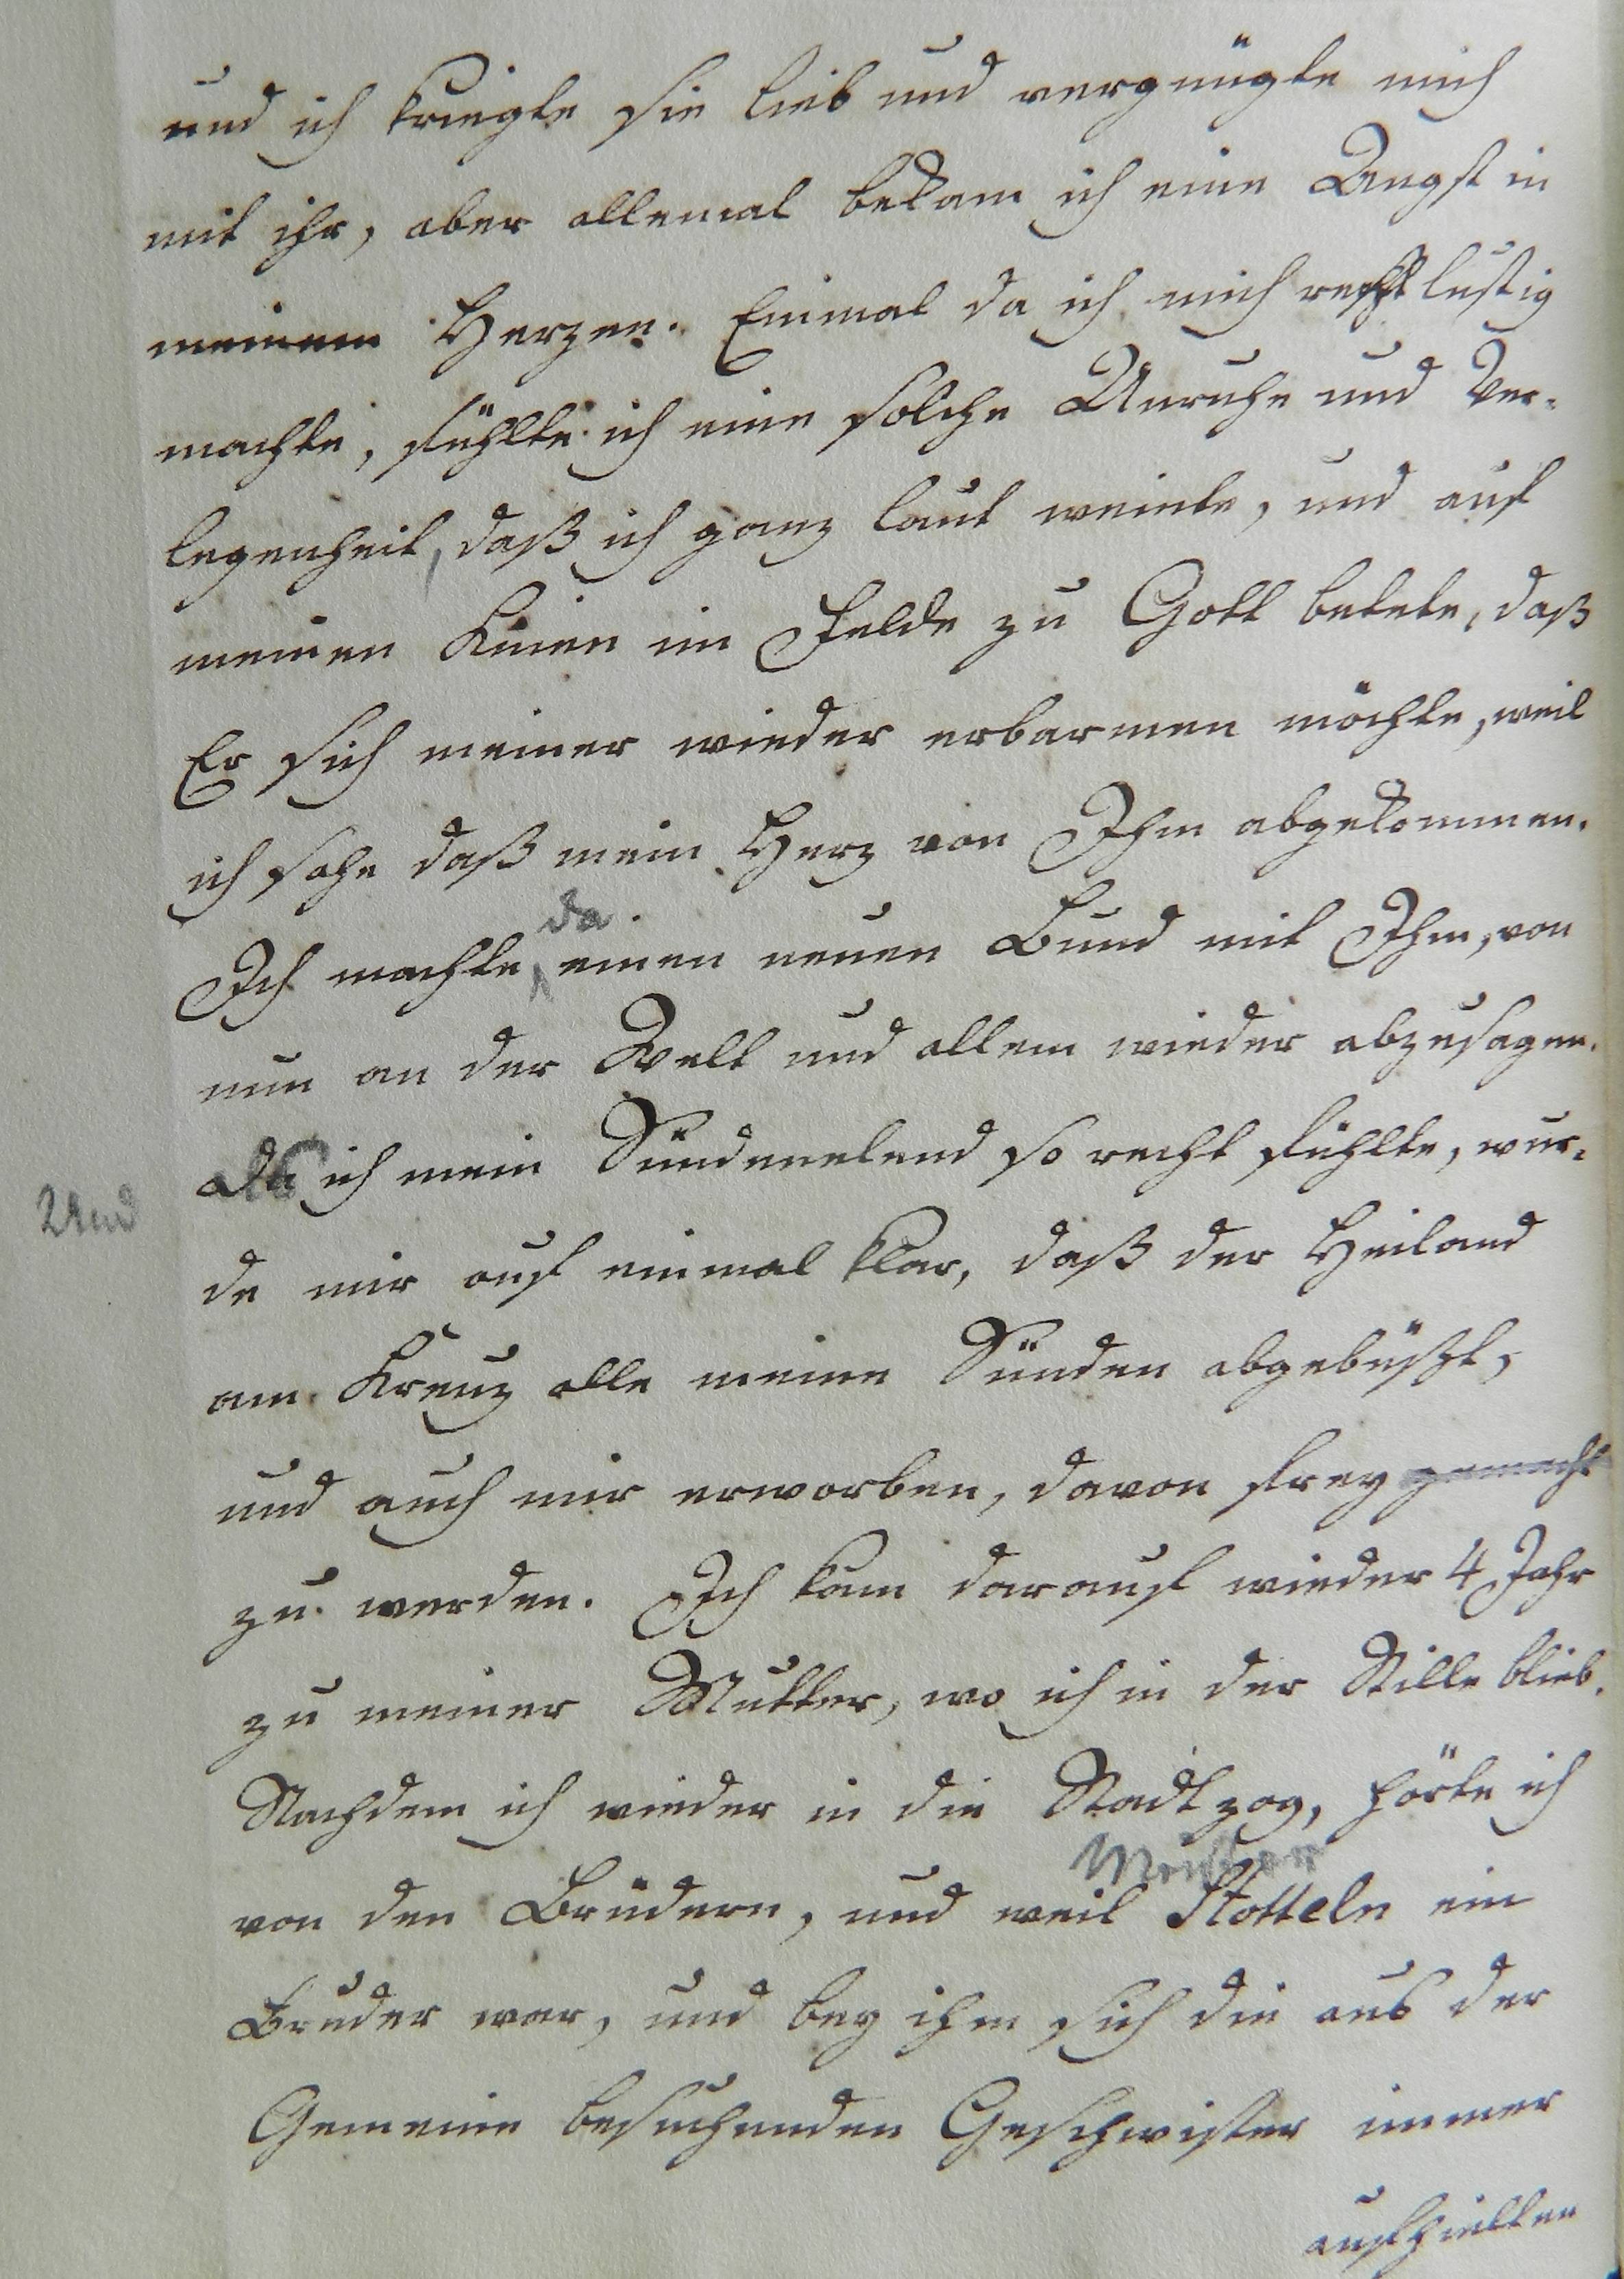 und ich kriegte sie lieb und vergnügte mich
mit ihr, aber allemal bekam ich eine Angst in
meinem Herzen. Einmal da ich mich recht lustig
machte, fühlte ich eine solche Unruhe und Ver-
legenheit, daß ich ganz laut weinte, und auf
meinen Knien im Felde zu Gott betete, daß
Er sich meiner wieder erbarmen möchte, weil
ich sahe daß mein Herz von Ihm abgekommen.
da
Ich machte einen neuen Bund mit Ihm, von
nun an der Welt und allem wieder abzusagen.
Und
als ich mein Sündenelend so recht fühlte, wur-
de mir auf einmal klar, daß der Heiland
am Kreuz alle meine Sünden abgebüßt,
und auch mir erworben, davon frey gemacht
zu werden. Ich kam darauf wieder 4 Jahr
zu meiner Mutter, wo ich in der Stille blieb.
Nachdem ich wieder in die Stadt zog, hörte ich
von den Brüdern, und weil Stotteln ein
Bruder war, und bey ihm sich die aus der
Gemeine besuchenden Geschwister immer
aufhielten